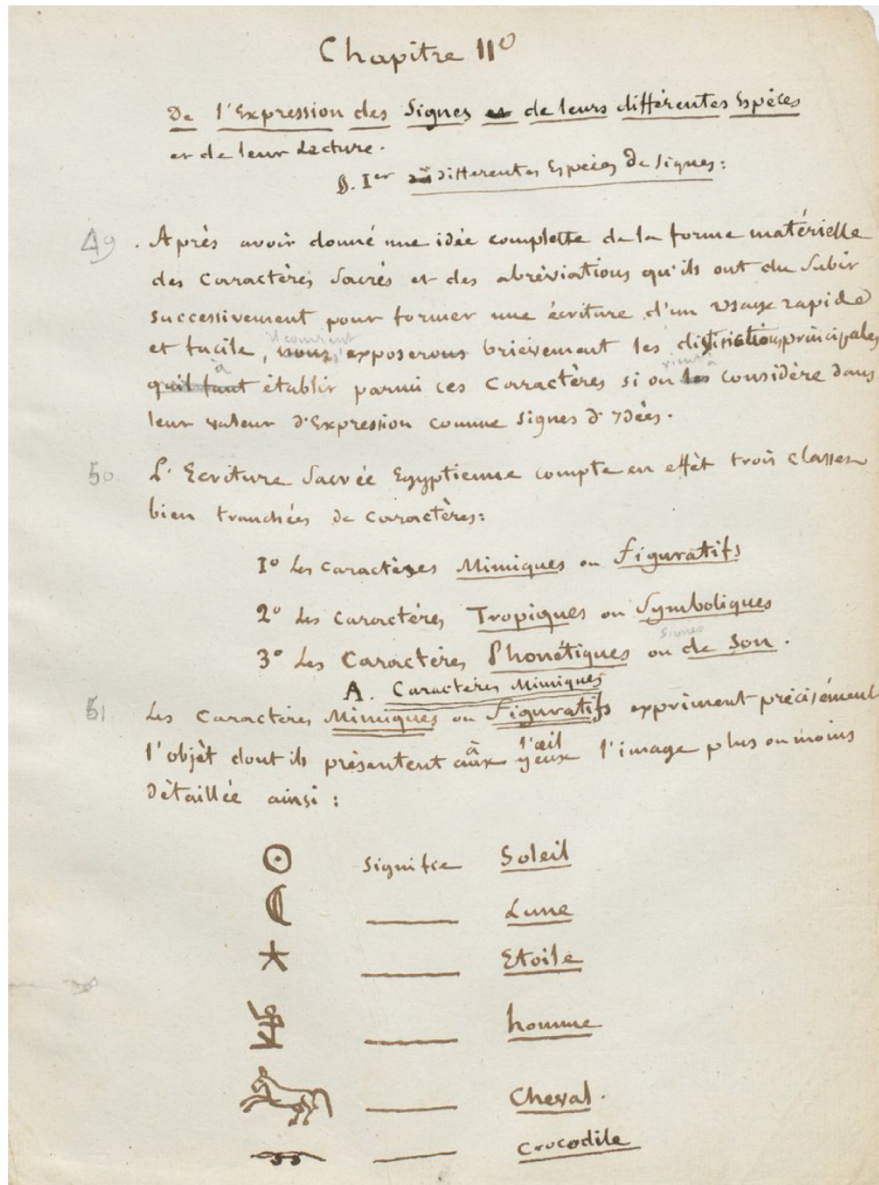 Chapitre II°
De l'Expression des Signes et de leurs différentes Espèces
et de leur Lecture.
§. Ier différentes Espèces de Signes:
49. Après avoir donné une idée complette de la forme matérielle
des Caractères Sacrés et des abréviations qu'ils ont du Subir
successivement pour former une écriture d'un usage rapide
et facile, nous exposerons brièvement les distinctions principales
qu'il faut à établir parmi ces Caractères si on les considère dans
leur valeur d'Expression comme signes d'Idées.
50 L'Ecriture Sacrée Egyptienne compte en effèt trois classes
bien tranchées de Caractères:
1° Les Caractères Mimiques ou figuratifs
2° Les Caractères Tropiques ou Symboliques
3° Les Caractères Phonétiques ou signes de Son.
A. Caractères Mimiques
51. Les Caractères Mimiques ou Figuratifs expriment précisément
l'objèt dont ils présentent aux à yeux l'œil l'image plus ou moins
détaillée ainsi :
Signifie Soleil
Lune
Etoile
homme
Cheval.
Crocodile